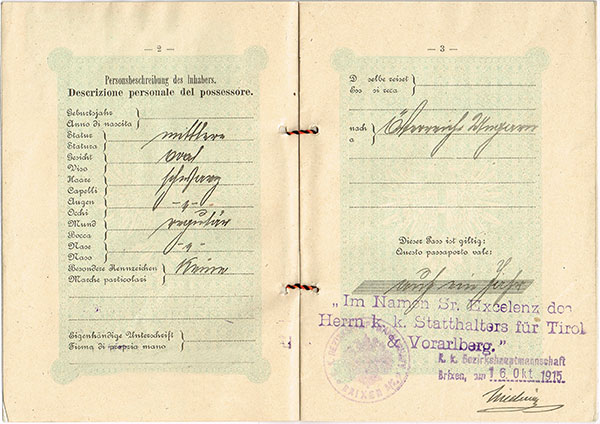 — 2 —
Personsbeschreibung des Inhabers.
Descrizione personale del possessore.
Geburtsjahr
Anno di nascita
Statur
Statura
mittlere
Gesicht
Viso
oval
Haare
Capelli
schwarz
Augen
Occhi
-„-
Mund
Bocca
regulär
Nase
Naso
-„-
Besondere Kennzeichen
Marche particolari
Keine
Eigenhändige Unterschrift
Firma di propria mano
— 3 —
D selbe reiset
Ess si reca
nach
a
Österreich Ungarn
Dieser Pass ist giltig:
Questo passaporto vale:
auf ein Jahr
„Im Namen Sr. Excelenz des
Herrn k. k. Statthalters für Tirol
& Vorarlberg."
K. k. Bezirkshauptmannschaft
Brixen, am 16. Okt. 1915